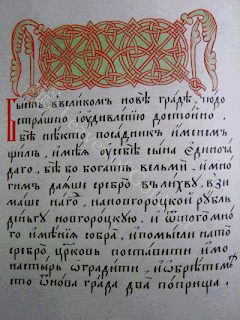 Бысть ввеликом новѣ граде, чюдо
страшно іоудивлению достойно.
бѣ нѣкто посадникъ именемъ
щилъ, имѣя оусебѣ сына единоча
даго, бѣ бо богатъ вельми, имно
гим даяше сребро влихву, взи
маше наго, наповгороцкой рубль
деньгу новгороцкую. и ѿтого мно
го имѣния собра, и помысли нато
сребро црковь поставити имо
настырь оградити, и ѡбрѣте мѣ
сто ѿнова града два поприща.